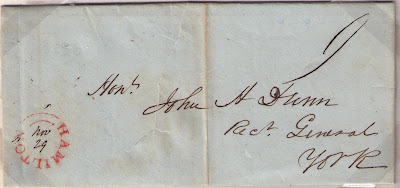 Honbl
John H Dunn
Recr. General
York
HAMILTON
Nov
29